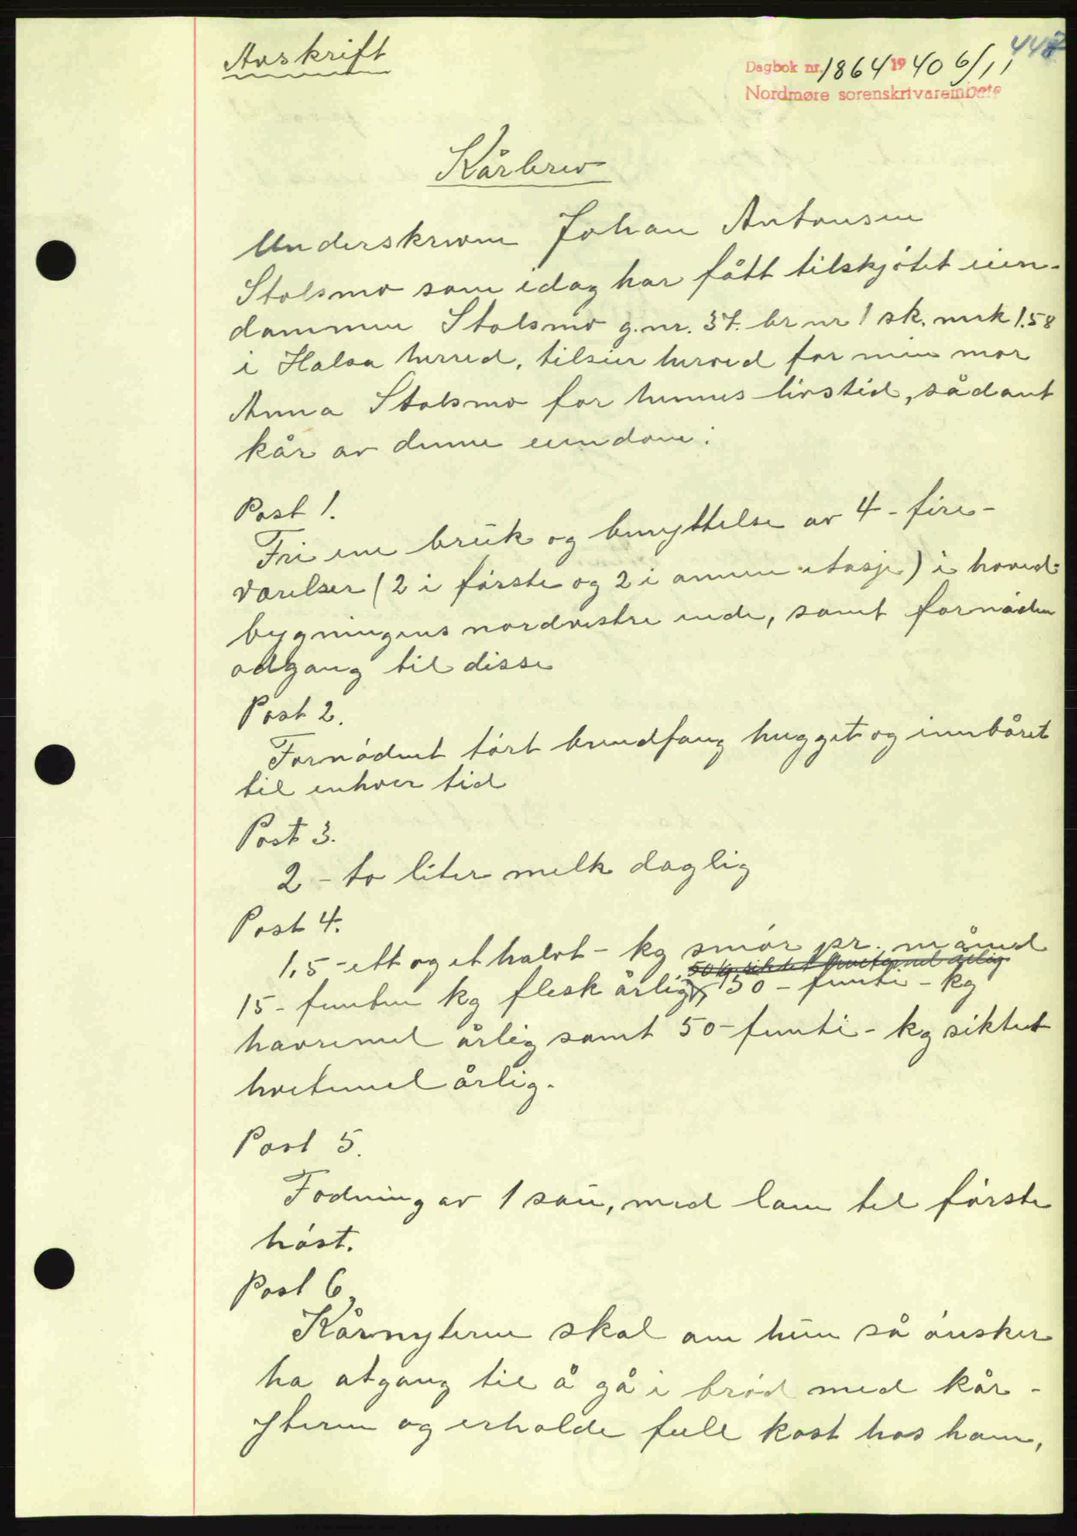 Avskrift
447
Dagbok nr. 1864 1940 6/11
Nordmøre sorenskriverembete
Kårbrev
Underskrevne Johan Antonsen
Stolsmo som idag har fått tilskjötet eien-
dommen Stolsmo g.nr. 37. br nr 1 sk. mrk 1.58
i Halsa herred, tilsier herved for min mor
Anna Stolsmo for hennes livstid, sådant
kår av denne eiendom:
Post 1.
Fri ene bruk og benyttelse av 4 - fire -
værelser (2 i förste og 2 i annen etasje) i hoved-
bygningens nordvestre ende, samt fornöden
adgang til disse
Post 2.
Fornödent tört brendfang hugget og innbåret
til enhver tid
Post 3.
2 - to liter melk daglig
Post 4.
1,5 - ett og et halvt - kg smör pr. måned
50 kg siktet hvetemel årlig
15 - femten kg flesk årlig, 50 - femti - kg
havremel årlig samt 50 - femti - kg siktet
hvetemel årlig.
Post 5.
Fodning av 1 sau, med lam til förste
höst.
Post 6.
Kårnyteren skal om hun så önsker
ha atgang til å gå i bröd med kår -
yteren og erholde full kost hos ham,